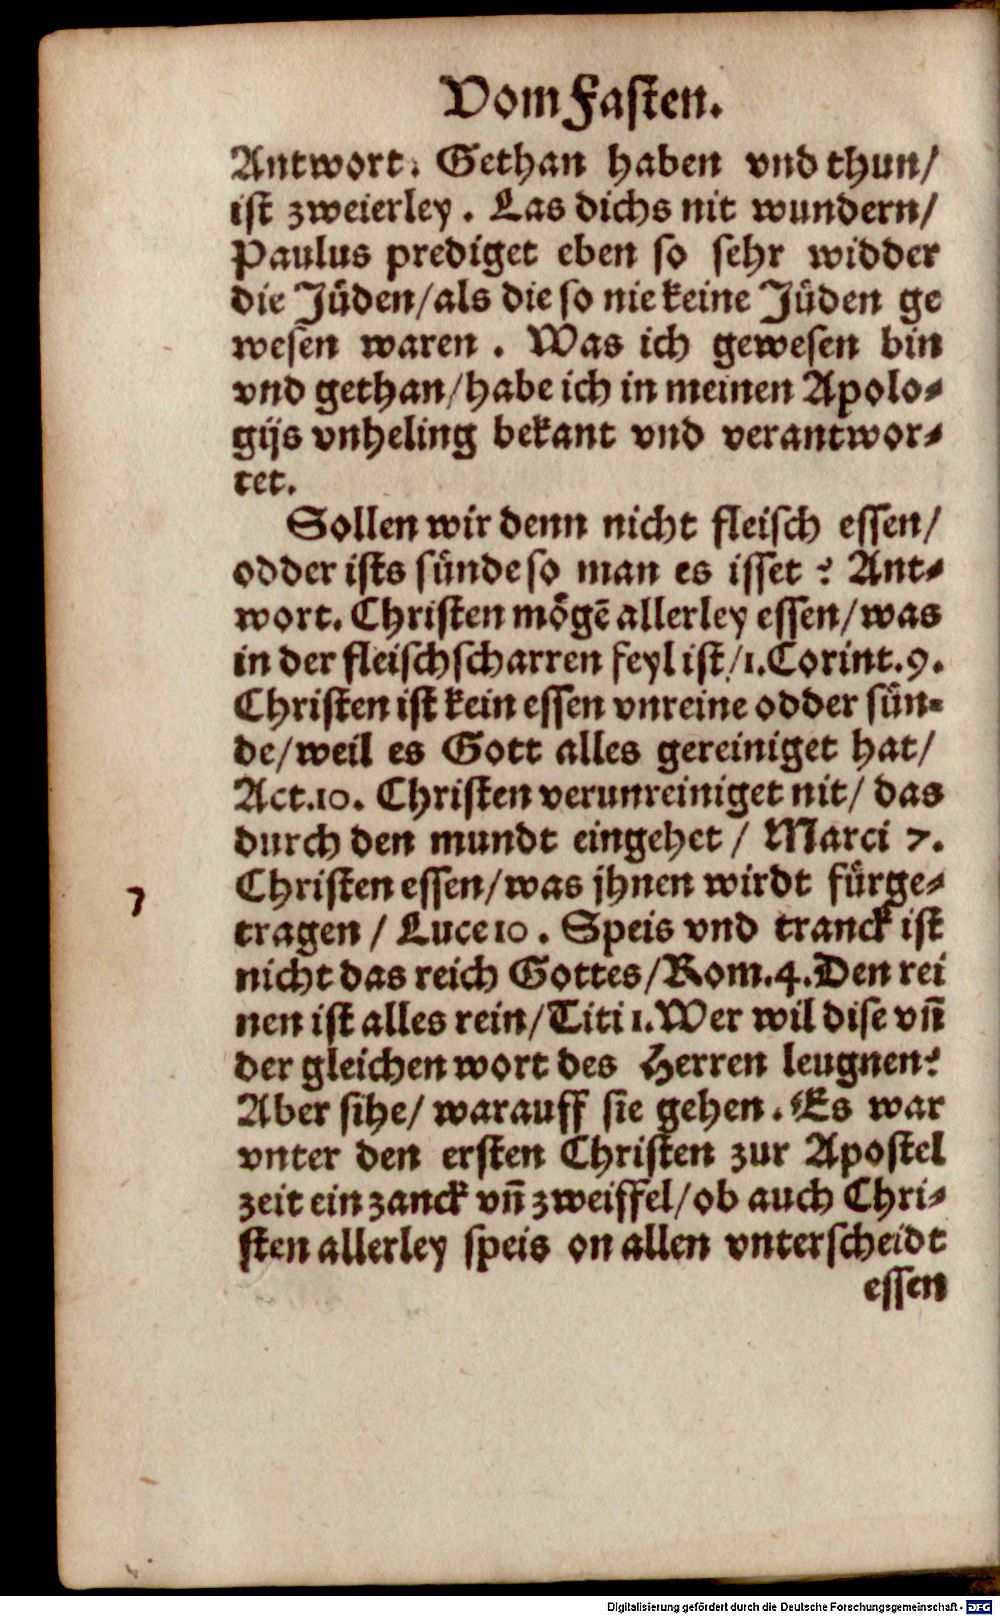 Vom Fasten.
Antwort. Gethan haben vnd thun/
ist zweierley. Las dichs nit wundern/
Paulus prediget eben so sehr widder
die Jüden/als die so nie keine Jüden ge
wesen waren. Was ich gewesen bin
vnd gethan/habe ich in meinen Apolo-
gijs vnheling bekant vnd verantwor-
tet.
Sollen wir denn nicht fleisch essen/
odder ists sünde so man es isset? Ant-
wort. Christen mögē allerley essen/was
in der fleischscharren feyl ist/1.Corint.9.
Christen ist kein essen vnreine odder sün-
de/weil es Gott alles gereiniget hat/
Act.10. Christen verunreiniget nit/das
durch den mundt eingehet/Marci 7.
Christen essen/was jhnen wirdt fürge-
tragen/Luce 10. Speis vnd tranck ist
nicht das reich Gottes/Rom.4.Den rei
nen ist alles rein/Titi 1.Wer wil dise vn̄
der gleichen wort des Herren leugnen?
Aber sihe/warauff sie gehen. Es war
vnter den ersten Christen zur Apostel
zeit ein zanck vn̄ zweiffel/ob auch Chri-
sten allerley speis on allen vnterscheidt
essen
Digitalisierung gefördert durch die Deutsche Forschungsgemeinschaft - DFG